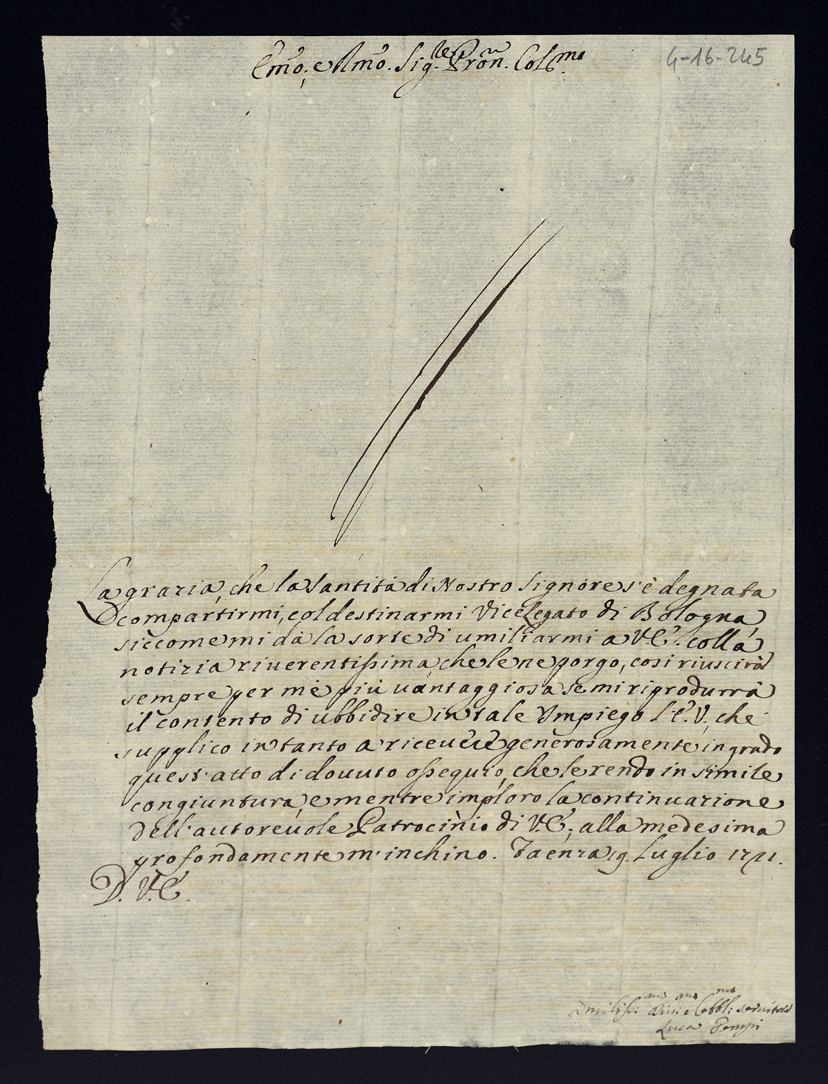 Emo, e Rmo. Sig.re Pron. Colmo
4-16-245
La grazia, che la Santità di Nostro Signore s'è degnata
compartirmi, col destinarmi Vice Legato di Bologna,
siccome mi dà la sorte di umiliarmi a V.E. colla
notizia riverentissima che le ne porgo, così riuscirà
sempre per mè più vantaggiosa se mi riprodurrà
il contento di ubbidire in tale Impiego l'E.V., che
supplico intanto a ricevere generosamente in grado
quest'atto di dovuto ossequio, che le rendo in simile
congiuntura, e mentre imploro la continuazione
dell'autorevole Patrocinio di V.E., alla medesima
profondamente m'inchino. Faenza 19 Luglio 1721.
D. V.E.
Umiliss.mo Div.mo e Obbl.mo servitore
Luca Tempi